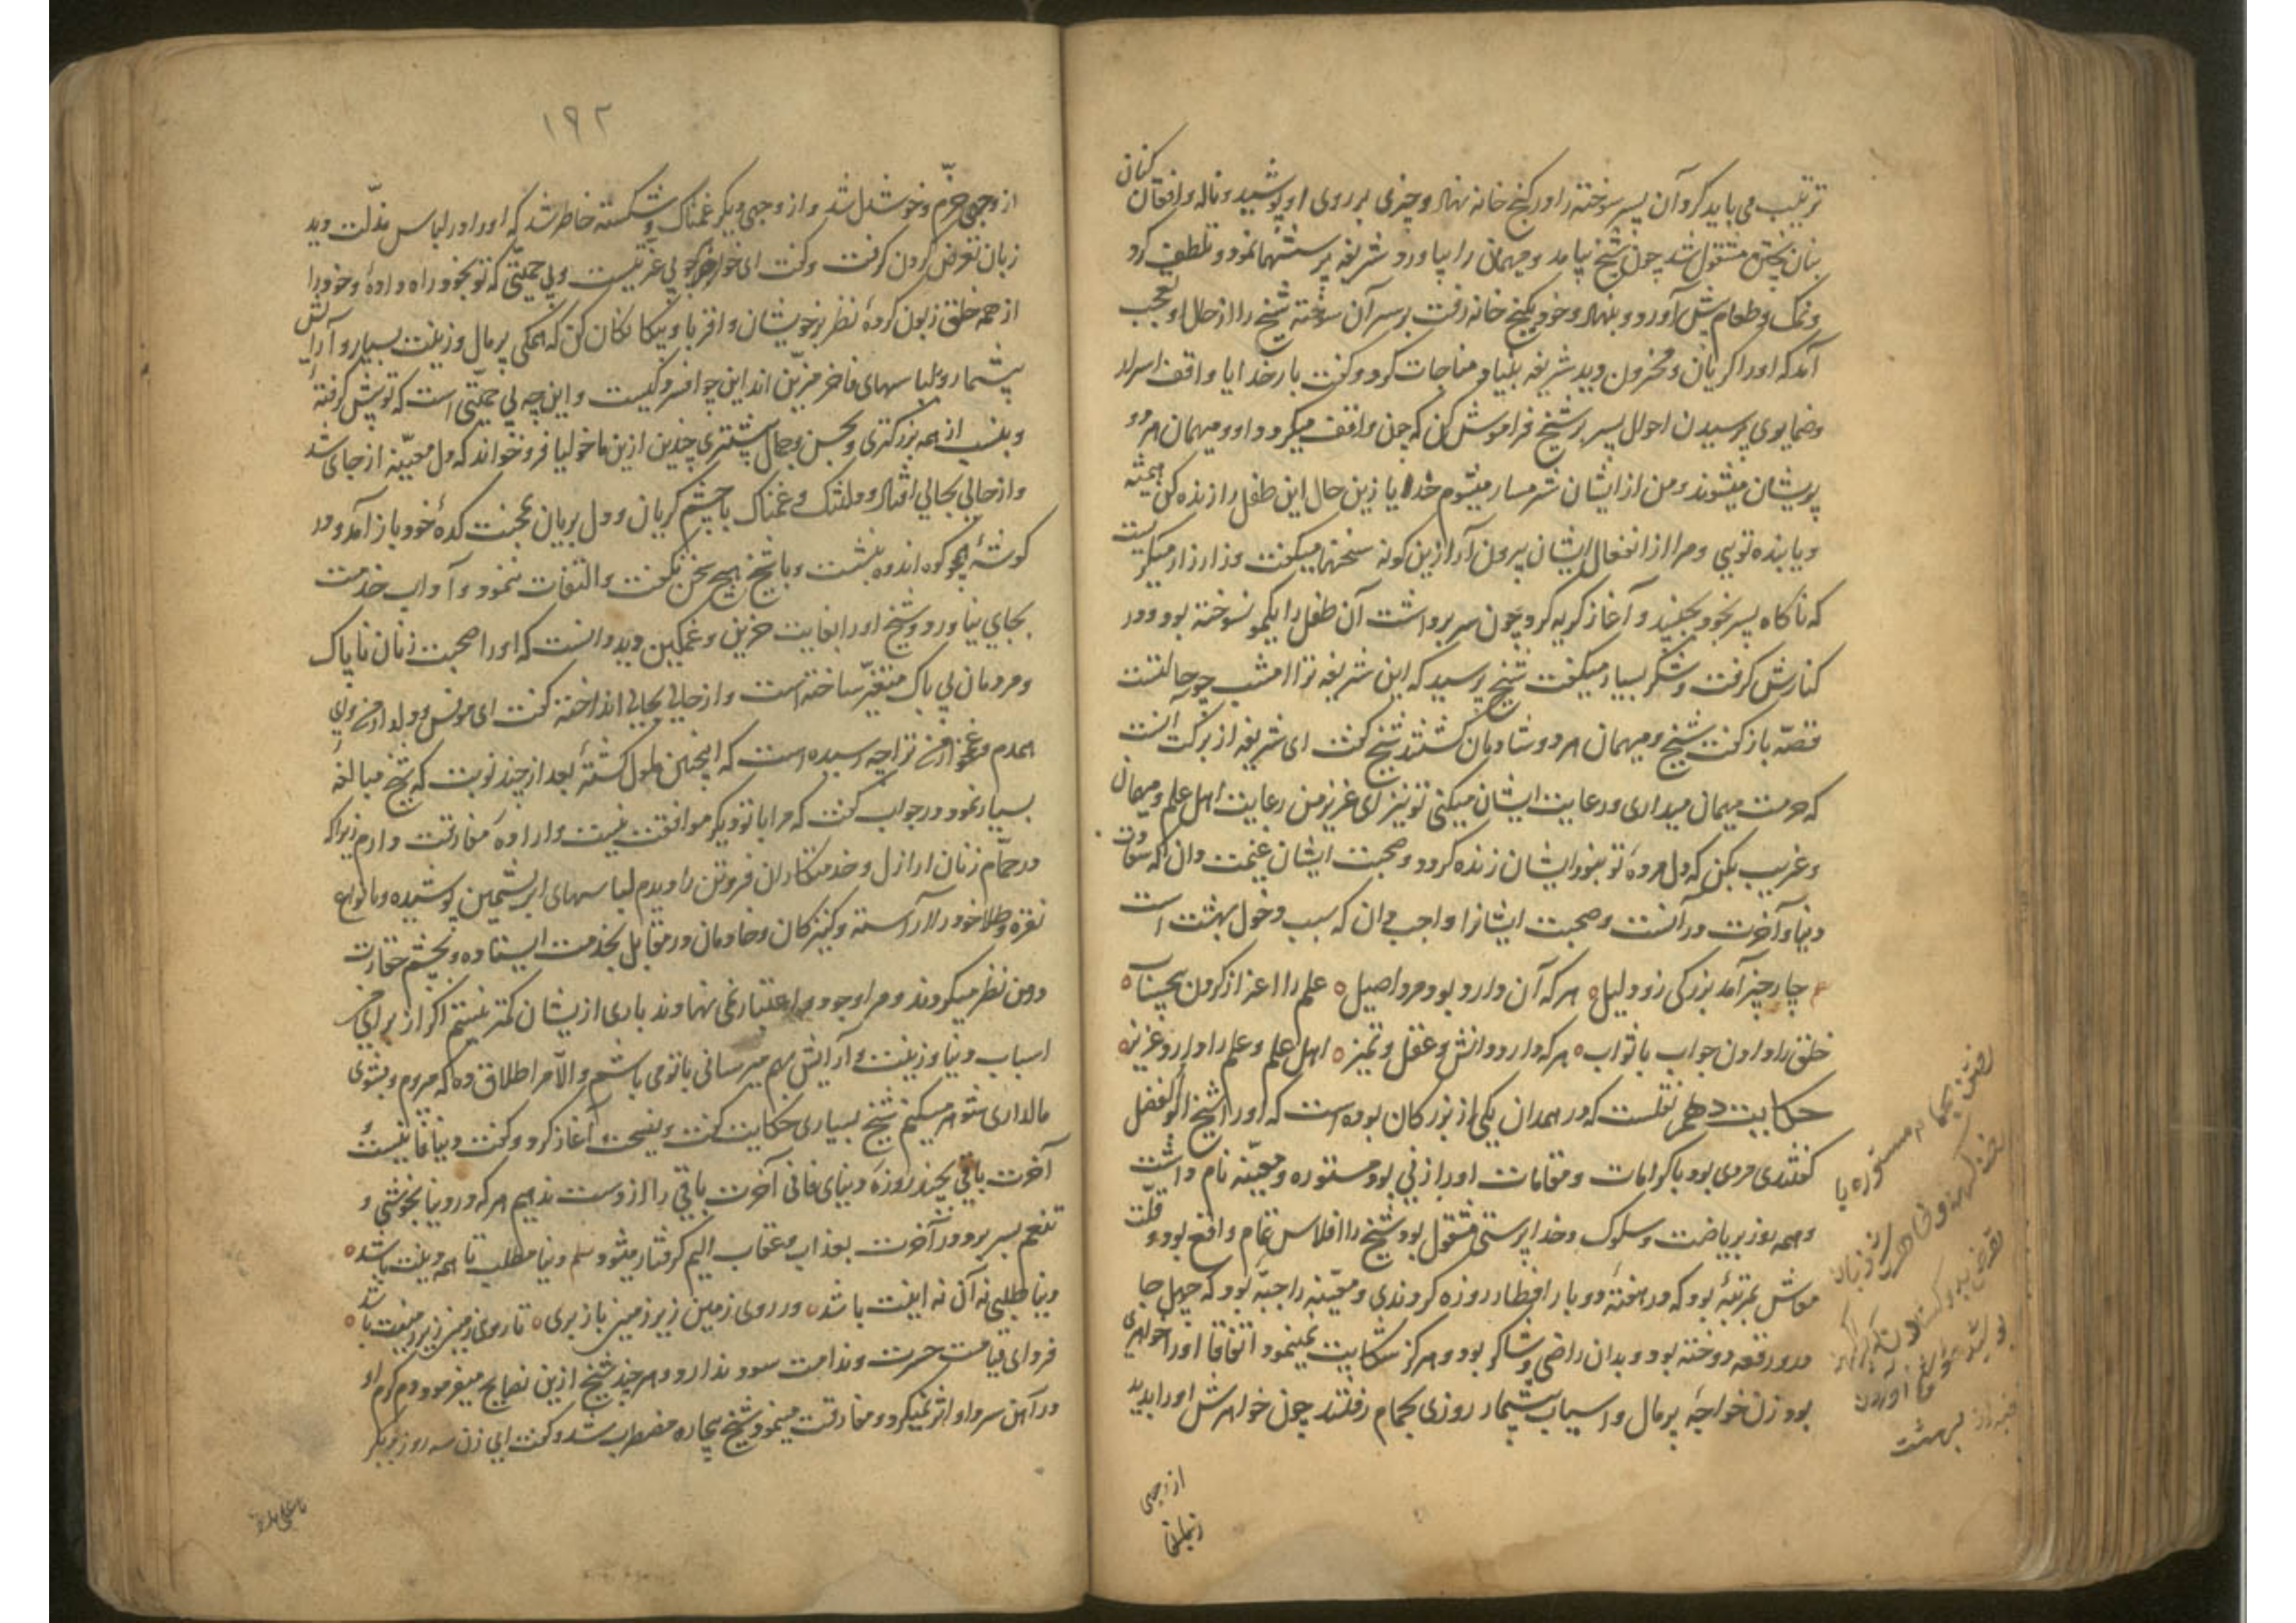 ترتیب می باید کرد و آن پسر سوخته را در کنج خانه نهاد و چیزی بر روی او پوشید و ناله و افغان کنان
بنان پختن مشغول شد چون شیخ بیامد و میهمان را بیاورد شریفه پرسشها نمود و تلطف کرد
و نمک و طعام پیش آورد و بنهاد و خود بکنج خانه رفت بر سر آن سوخته شیخ را از حال او تعجب
آمد که او را گریان و محزون دید شریفه بنیاد مناجات کرد و گفت بار خدایا واقف اسرار
و ضمایری پرسیدن احوال پسر بر شیخ فراموش کن که چون واقف میگردد او و میهمان هر دو
پریشان میشوند و من از ایشان شرمسار میشوم خدایا زین حال این طفل را زنده کن
و یا بنده تویی و مرا از انفعال ایشان بیرون آر ازین گونه سخنها میگفت و زار زار میگریست
که ناگاه پسر بخود بجنبید و آغاز گریه کرد چون سر برداشت آن طفل را یکمو نسوخته بود و در
کنارش گرفت و شکر بسیار میگفت شیخ پرسید که این شریفه ترا امشب چه حالتست
قصه باز گفت شیخ و میهمان هر دو شادمان گشتند شیخ گفت ای شریفه از برکت آنست
که حرمت میهمان میداری و رعایت ایشان میکنی تو نیز ای عزیز من رعایت اهل علم و میهمان
و غریب بکن که دل مرده تو بنور ایشان زنده گردد و صحبت ایشان غنیمت دان که سعادت
دنیا و آخرت در آنست و صحبت ایشانرا واجب دان که سبب دخول بهشت است
چار چیز آمد بزرگی را دلیل هر که آن دارد بود مرد اصیل علم را اعزاز کردن بیحساب
خلق را دادن جواب با ثواب هر که دارد دانش و عقل و تمیز اهل علم و علم را دارد عزیز
حکایت دهم نقلست که در همدان یکی از بزرگان بوده است که او را شیخ ابوالفضل
گفتندی مردی بود با کرامات و مقامات او را زنی بود مستوره و معینه نام داشت
و همه روز بریاضت و سلوک و خدا پرستی مشغول بود شیخ را افلاس تمام واقع بود و قلت
معاش بمرتبه بود که در هفته دو بار افطار روزه کردندی و معینه را جبه بود که چهل جا
در و رقعه دوخته بود و بدان راضی و شاکر بود و هرگز شکایت نمینمود اتفاقا او را خواهری
بود زن خواجه پر مال و اسباب بیشمار روزی بحمام رفتند چون خواهرش او را بدید
از وجهی
رفتن بحمام مستوره با
بهشت
۱۹۲
از وجهی خرم و خوشدل شد و از وجهی دیگر غمناک و شکسته خاطر شد که او را در لباس مذلت دید
زبان تعرض کردن گرفت و گفت ای خواهر چه بی غیرتیست و بی حمیتی که تو بخود راه داده و خود را
از همه خلق زبون کرده نظر بر خویشان و اقربا و بیگانگان کن که همگی پر مال و زینت بسیار و آرایش
بیشمار و بلباسهای فاخر مزین اند این چه افسردگیست و این چه بی حمیتی است که تو پیش گرفته
و بنسب از همه بزرگتری و بحسن و جمال بیشتری چندین ازین ماخولیا فرو خواند که دل معینه از جای شد
و از حالی بحالی افتاد و دلتنگ و غمناک با چشم گریان و دل بریان بمحنت کده خود باز آمد و در
گوشه همچو کوه اندوه بنشست و با شیخ هیچ سخن نگفت و التفات ننمود و آداب خدمت
بجای نیاورد و شیخ او را بغایت حزین و غمگین دید دانست که او را صحبت زنان ناپاک
و مردمان بی باک متغیر ساخته است و از حالی بحالی انداخته گفت ای مونس و دلدار من و ای
همدم و غمخوار من ترا چه رسیده است که اینچنین ملول گشته بعد از چند نوبت که شیخ مبالغه
بسیار نمود در جواب گفت که مرا با تو دیگر موافقت نیست و اراده مفارقت دارم زیرا که
در حمام زنان اراذل و خدمتکاران فروتن را دیدم لباسهای ابریشمین پوشیده و بانواع
نقره و طلا خود را آراسته و کنیزکان و خادمان در مقابل بخدمت ایستاده و بچشم حقارت
در من نظر میکردند و مرا وجودی و اعتباری نمی نهادند باری ازیشان کمتر نیستم اگر از برای من
اسباب دنیا و زینت و آرایش بهم میرسانی با تو می باشم و الا مرا طلاق ده که میروم و بشوی
مالداری شوهر میکنم شیخ بسیاری حکایت گفت و نصیحت آغاز کرد و گفت دنیا فانیست و
آخرت باقی بچند روزه دنیای فانی آخرت باقی را از دست ندهیم هر که در دنیا بخوشی و
تنعم بسر برد در آخرت بعذاب و عقاب الیم گرفتار میشود دنیا مطلب تا همه دینت باشد
دنیا طلبی نه آن نه اینت باشد در روی زمین زیر زمین باز بری تا روی زمین زیر زمینت باشد
فردای قیامت حسرت و ندامت سود ندارد و هر چند شیخ ازین نصایح میفرمود دم گرم او
در آهن سرد او اثر نمیکرد و مفارقت میجست شیخ بیچاره مضطرب شد و گفت ای زن سه روز دیگر